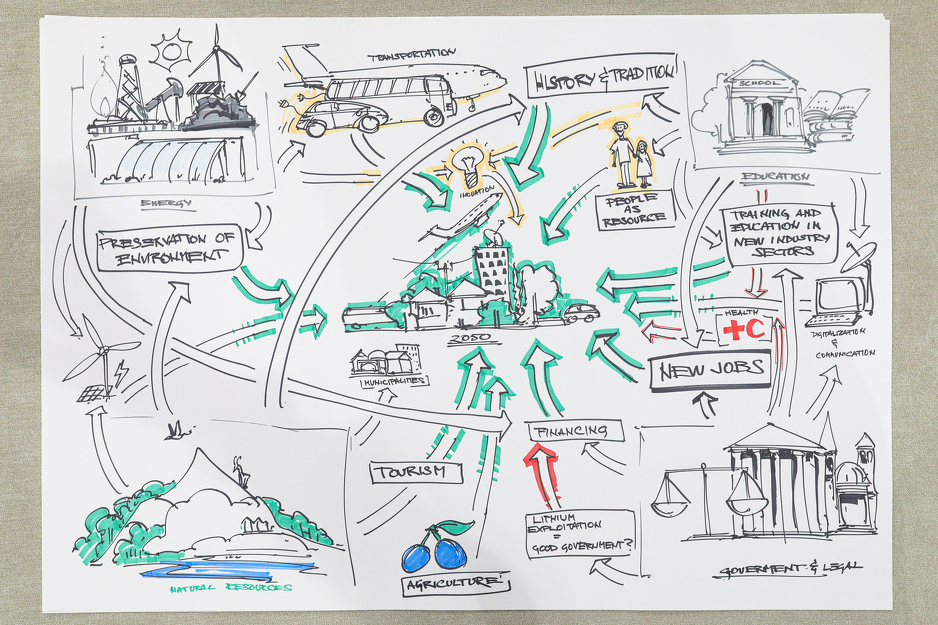 TRANSPORTATION
HISTORY & TRADITION
SCHOOL
ENERGY
INOVATION
PEOPLE
AS
RESOURCE
EDUCATION
PRESERVATION OF
ENVIRONMENT
TRAINING AND
EDUCATION IN
NEW INDUSTRY
SECTORS
HEALTH
+C
DIGITALIZATION
&
COMMUNICATION
2050
MUNICIPALITIES
NEW JOBS
FINANCING
TOURISM
LITHIUM
EXPLOITATION
=
GOOD GOVERNMENT?
AGRICULTURE!
NATURAL RESOURCES
GOVERMENT & LEGAL